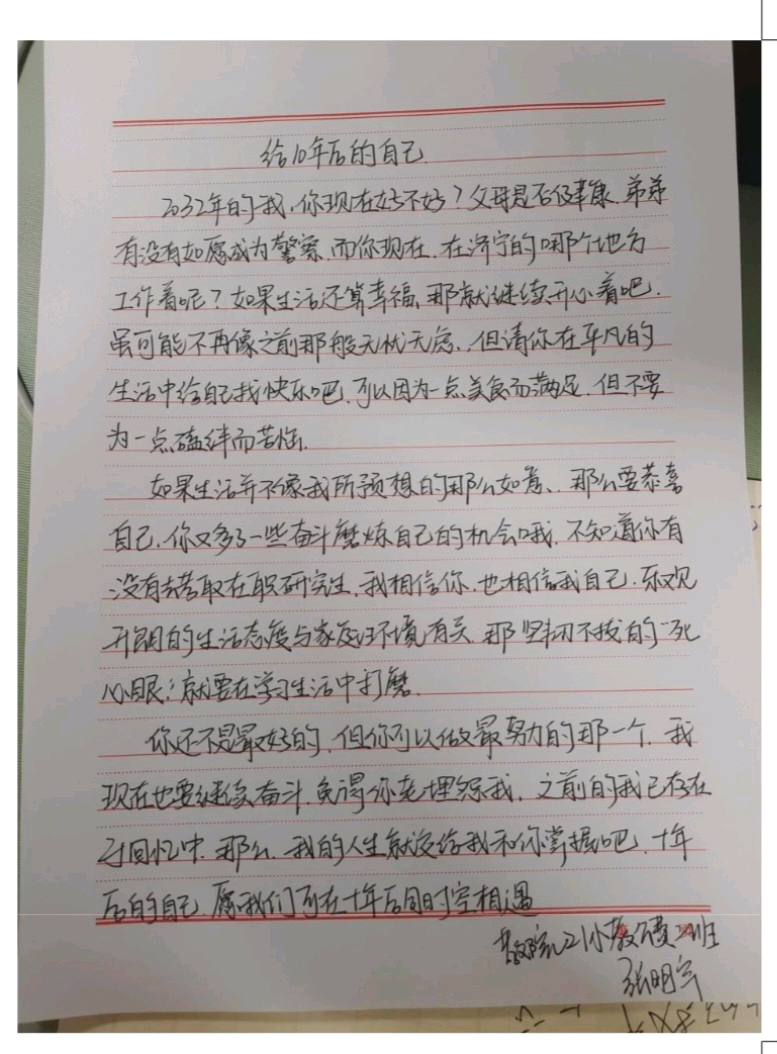 给10年后的自己
2032年的我,你现在好不好?父母是否仍健康,弟弟
有没有如愿成为警察,而你现在,在济宁的哪个地方
工作着呢?如果生活还算幸福,那就继续开心着吧.
虽可能不再像之前那般无忧无虑,但请你在平凡的
生活中给自己找快乐吧,可以因为一点美食而满足,但不要
为一点磕绊而苦恼.
如果生活并不像我所预想的那么如意、那么要恭喜
自己,你又多了一些奋斗磨炼自己的机会哦,不知道你有
没有去考取在职研究生,我相信你,也相信我自己,乐观
开朗的生活态度与家庭环境有关,那坚韧不拔的“死
心眼”就要在学习生活中打磨.
你还不是最好的,但你可以做最努力的那一个,我
现在也要继续奋斗,免得你老埋怨我,之前的我已存在
于回忆中,那么,我的人生就交给我和你掌握吧,十年
后的自己,愿我们可在十年后同时空相遇
21小教公费2班
张明宇